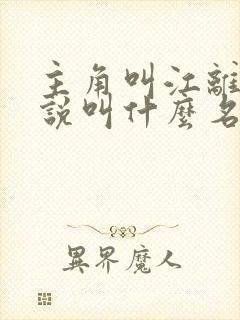 主角叫江離
說叫什麼名
異界魔人